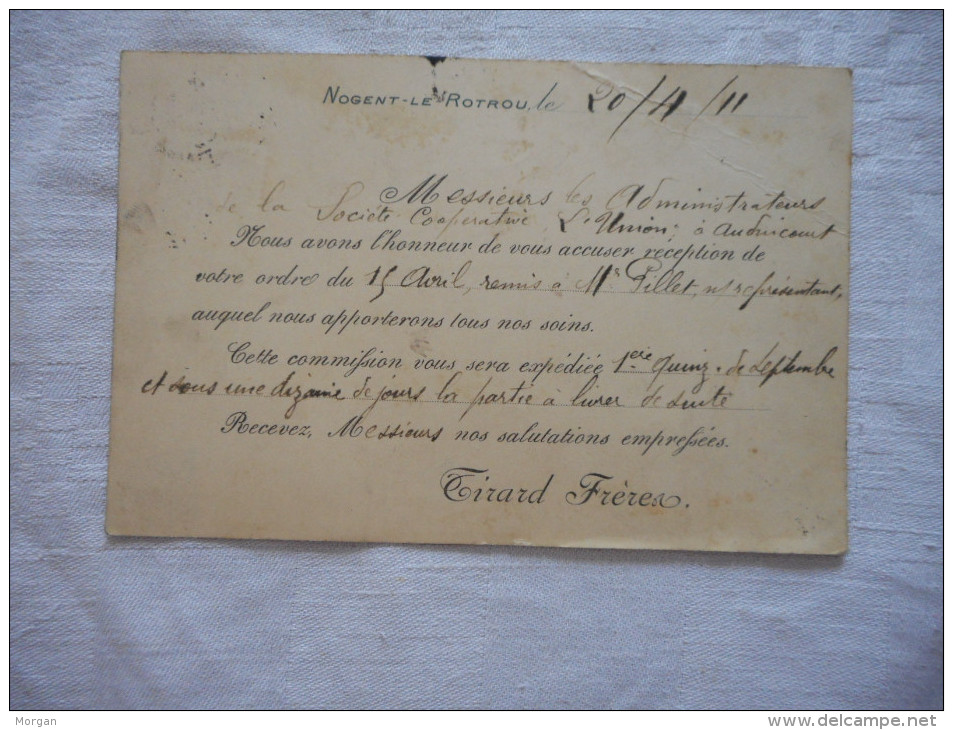 NOGENT-LE-ROTROU, le 20/4/11
Messieurs les Administrateurs
de la Société Coopérative L'Union, à Audincourt
Nous avons l'honneur de vous accuser réception de
votre ordre du 15 Avril, remis à Mr Pillet, n/ représentant,
auquel nous apporterons tous nos soins.
Cette commission vous sera expédiée 1ere quinz. de septembre
et sous une dizaine de jours la partie à livrer de suite
Recevez, Messieurs nos salutations empressées.
Tirard Frères.
Morgan
http://www.delcampe.net